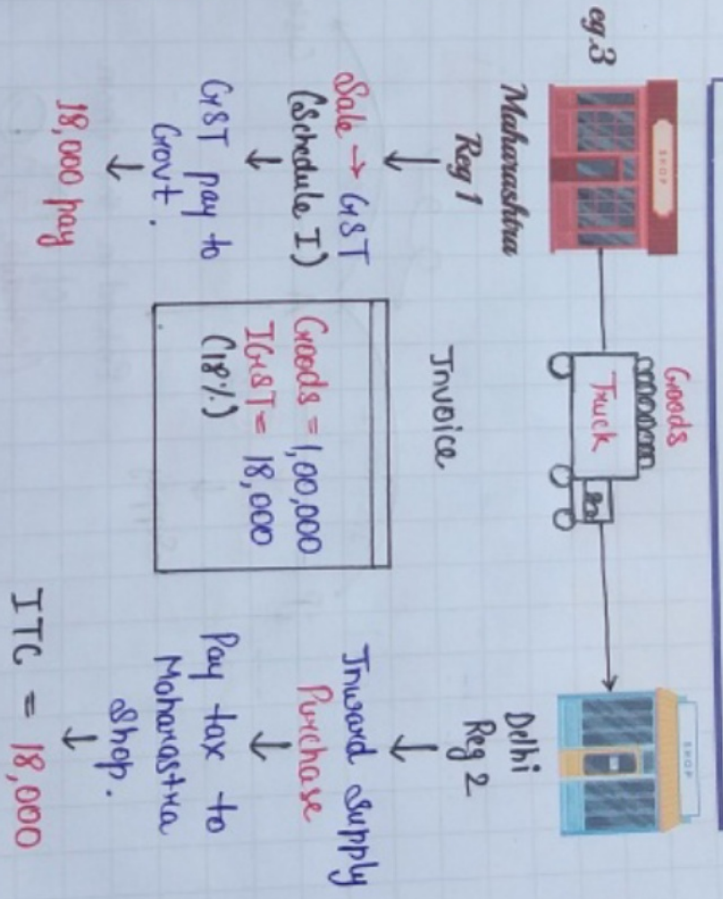 eg.3
SHOP
Maharashtra
Reg 1
Sale → GST
(Schedule I)
GST pay to
Govt.
18,000 pay
Goods
Truck
Invoice
Goods = 1,00,000
IGST = 18,000
(18%)
SHOP
Delhi
Reg 2
Inward Supply
Purchase
Pay tax to
Maharastra
Shop.
ITC = 18,000